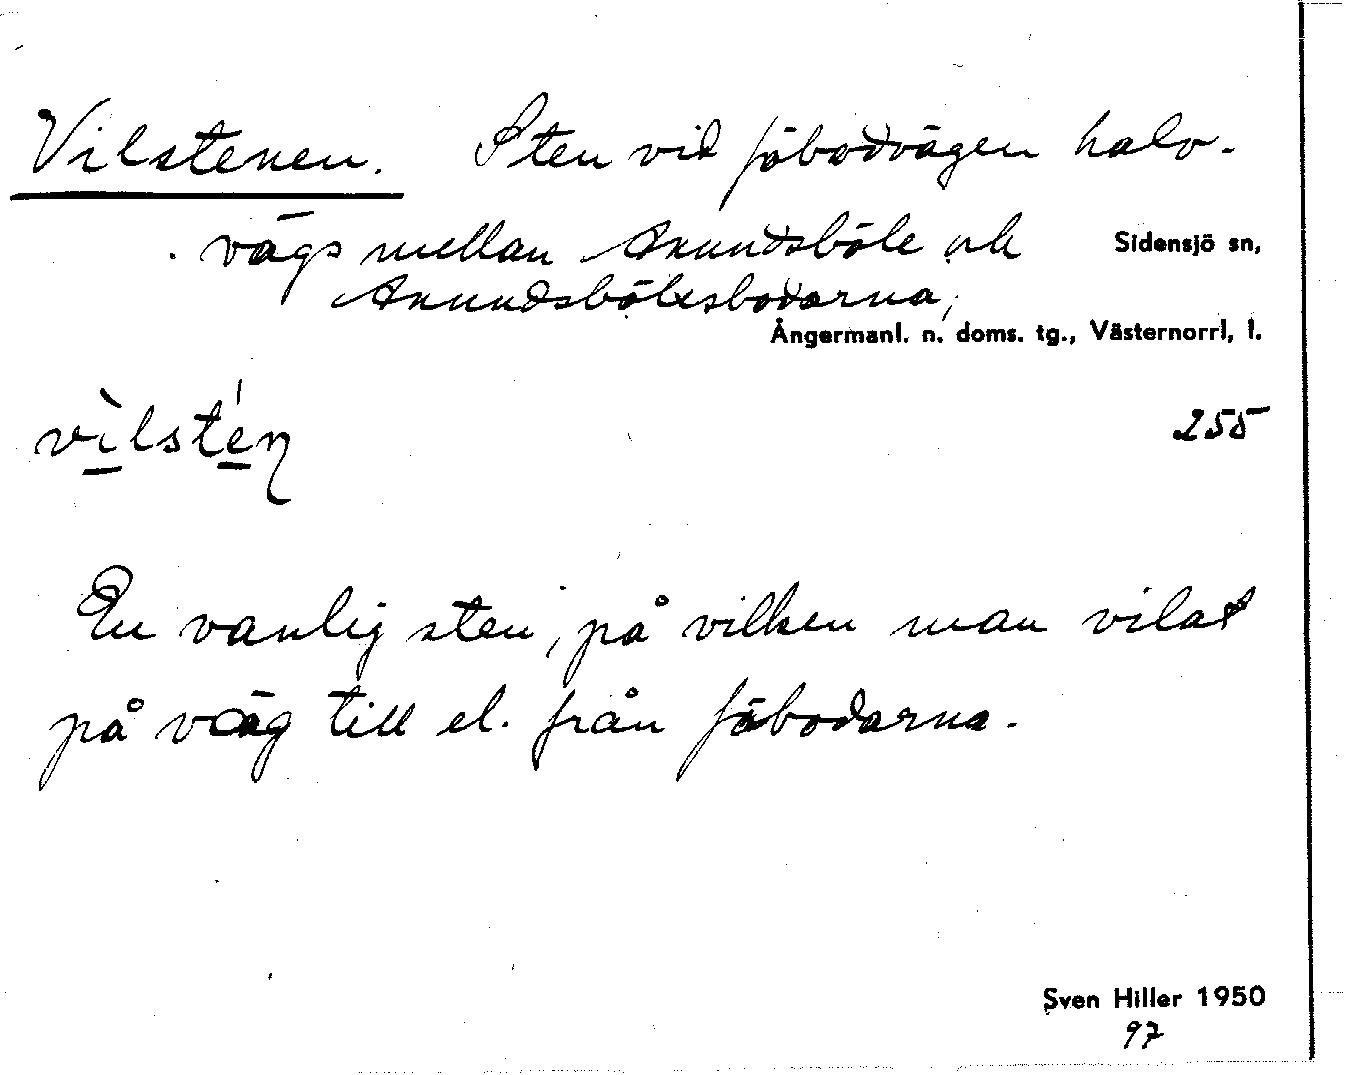 Vilstenen. Sten vid fäbodvägen halv-
vägs mellan Anundsböle och
Sidensjö sn,
Anundsbölesbodarna,
Ångermanl. n. doms. tg., Västernorrl, l.
vì̱lsté̱ɳ
255
En vanlig sten, på vilken man vilat
på väg till el. från fäbodarna.
Sven Hiller 1950
97